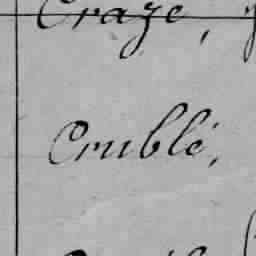 Craze,
Crublé,